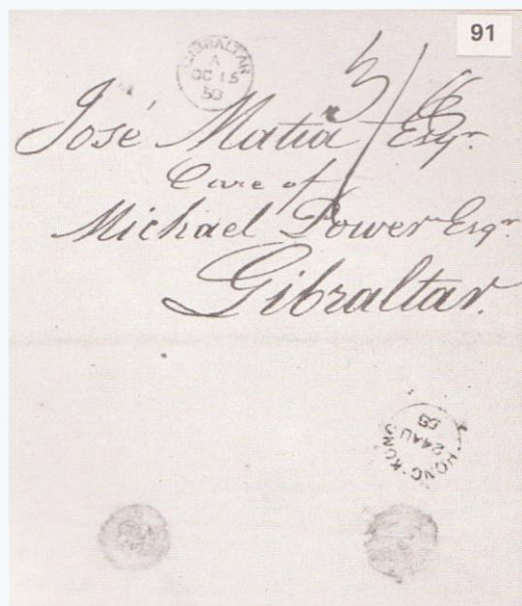 91
GIBRALTAR
A
OC 15
59
José Matia Esqr.
Care of
Michael Power Esqr
Gibraltar.
HONG KONG
24 AU
59